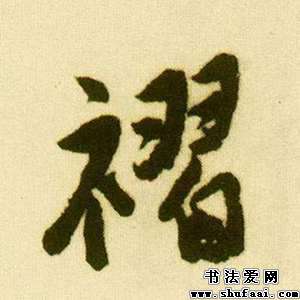 褶
书法爱网
www.shufaai.com